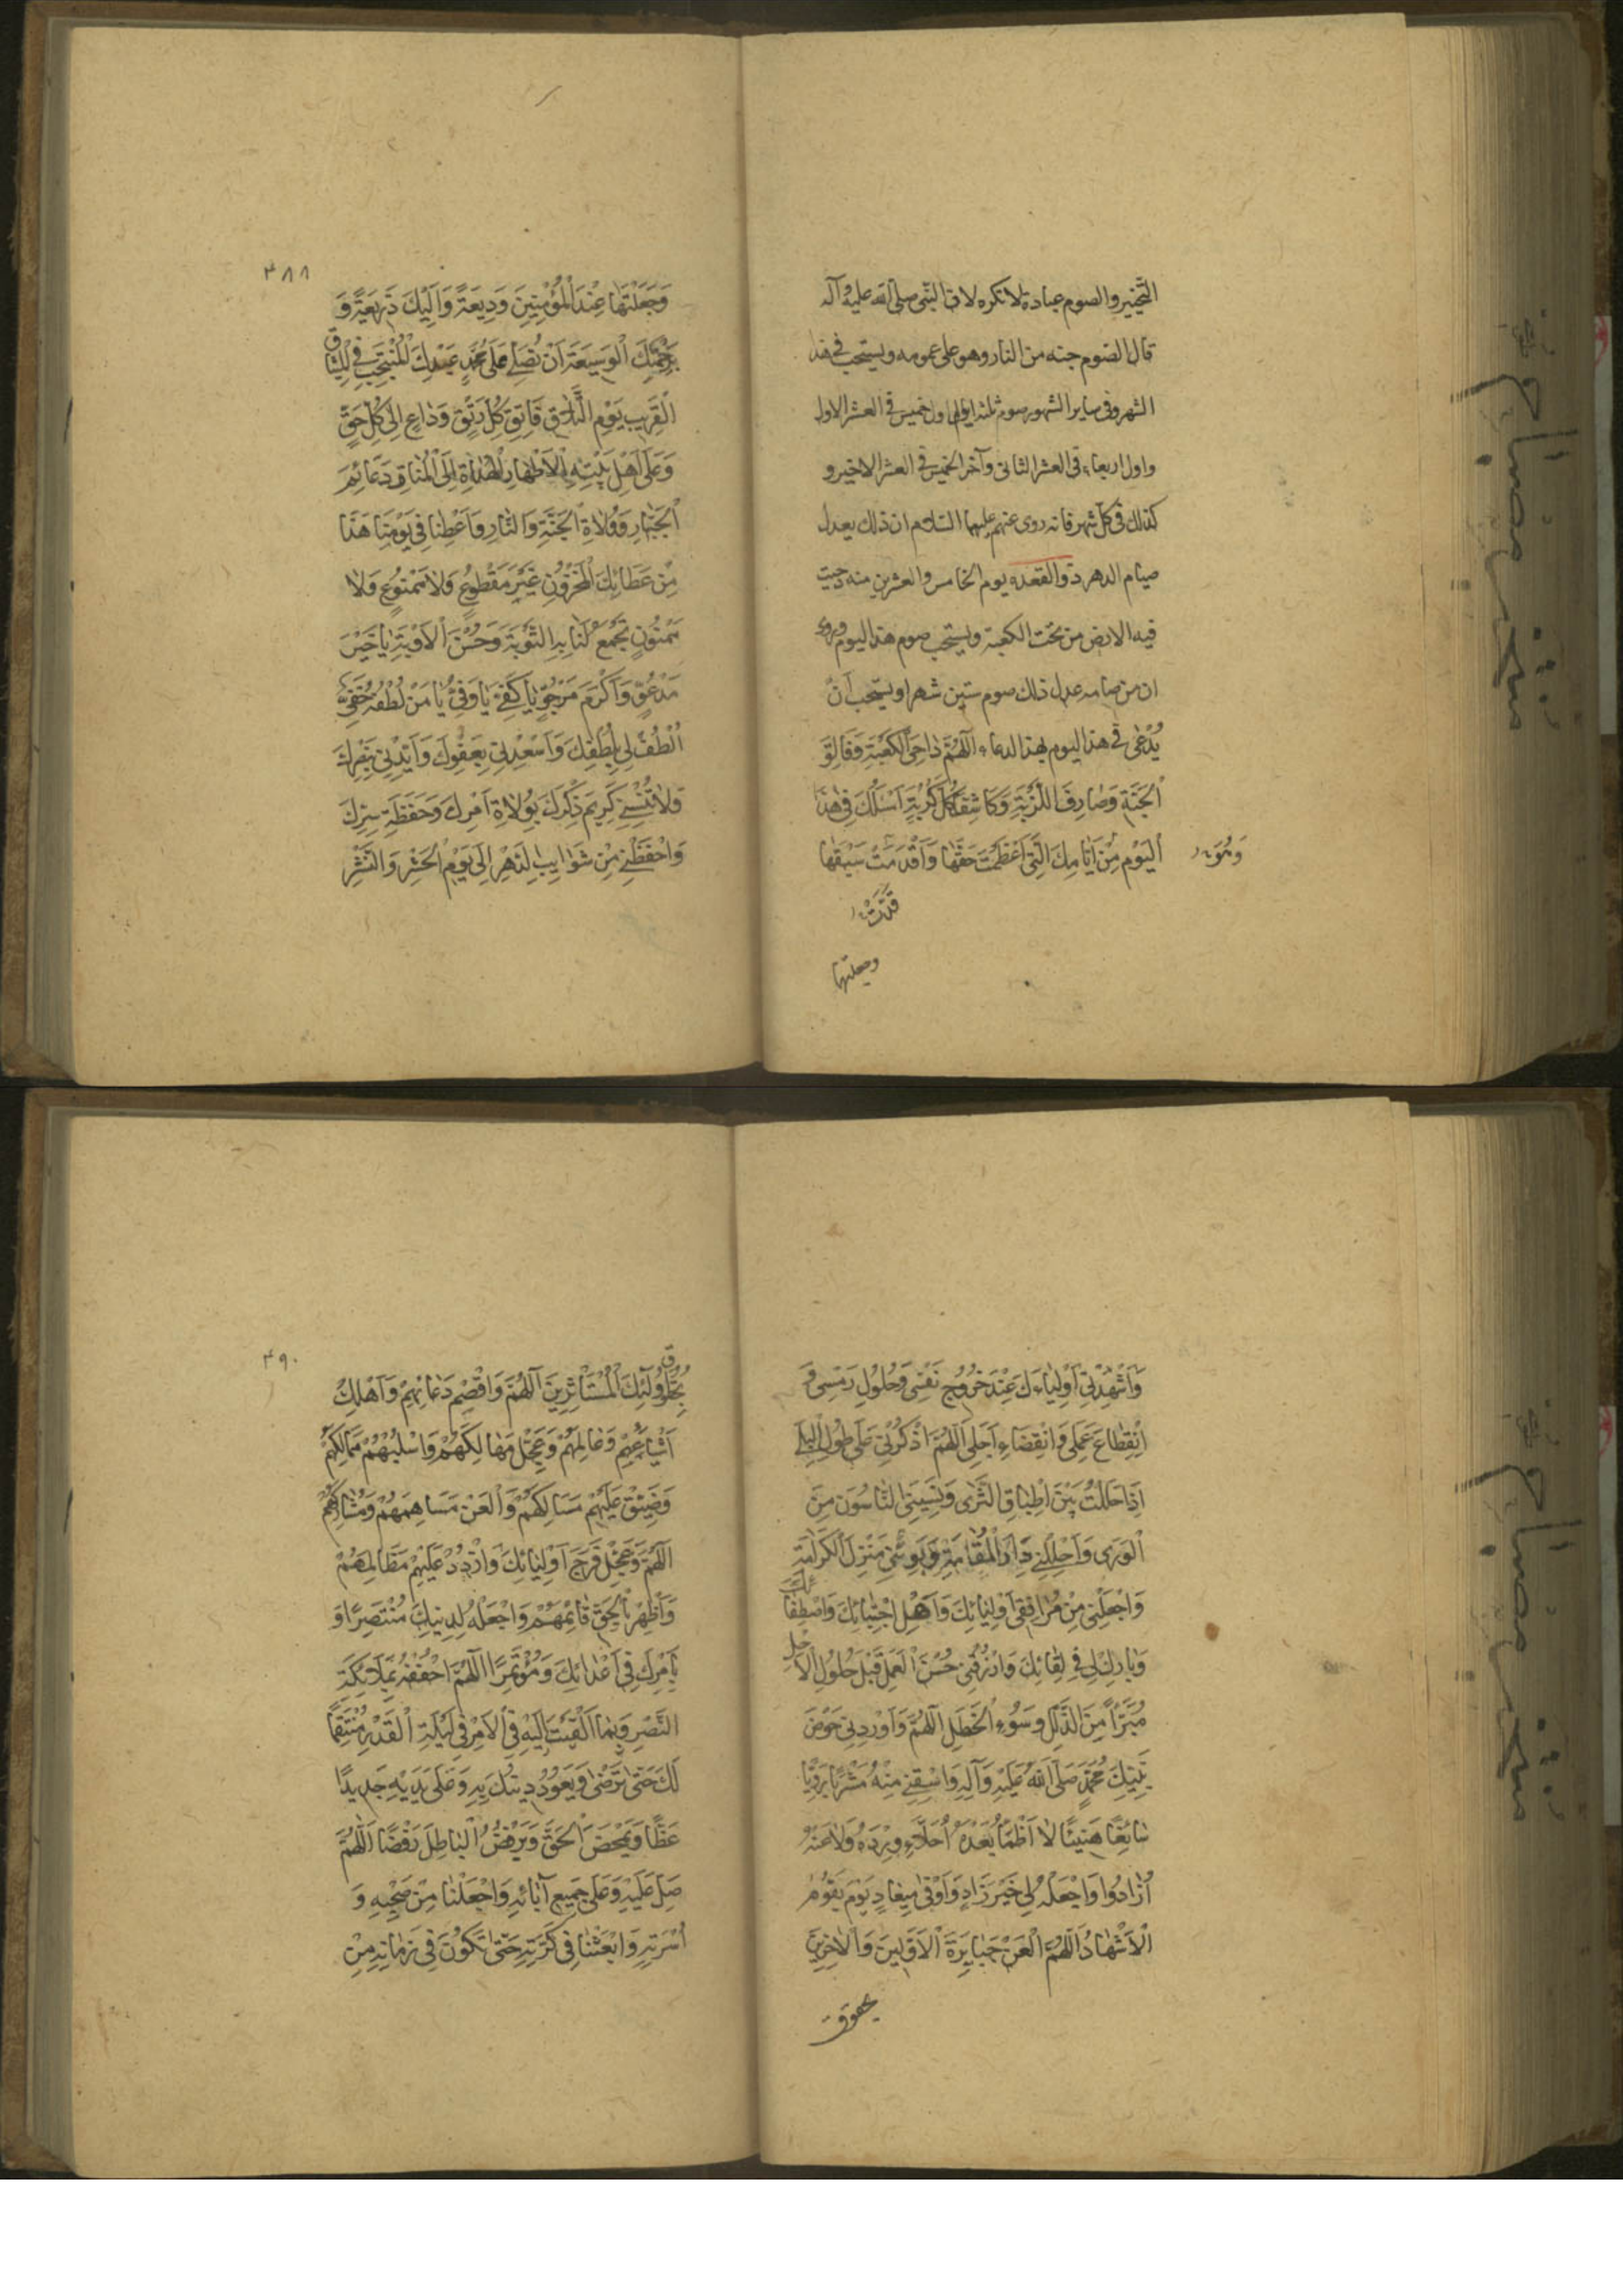 التخيير والصوم عبادة لا تكره لان النبی صلی الله علیه وآله
قال الصوم جنه من النار وهو علی عمومه ويستحب فی هذا
الشهر وفی سایر الشهور صوم ثلثه ایام اول خمیس فی العشر الاول
واول اربعاء فی العشر الثانی وآخر الخمیس فی العشر الاخیر و
كذلك فی كلّ شهر فانه روی عنهم علیهم السّلام ان ذلك یعدل
صیام الدهر ذو القعده یوم الخامس والعشرین منه دحیت
فیه الارض من تحت الكعبة ویستحب صوم هذا الیوم وروی
ان من صامه عدل ذلك صوم ستین شهرا ویستحب أن
یُدْعٰی فی هذا الیوم بهذا الدعاء اَللّهُمَّ دٰاحِیَ الْكَعْبَةِ وَفَالِقَ
اَلْحَبَّةِ وَصٰارِفَ اللَّزْبَةِ وَكَاشِفَ كُلِّ كُرْبَةٍ اَسْئَلُكَ فِی هٰذَا
اَلْیَوْمِ مِنْ اَیّٰامِكَ الَّتِی اَعْظَمْتَ حَقَّهٰا وَاَقْدَمْتَ سَبْقَهٰا
قَدَّمْتَ
وجعلتها
٣٨٨
وَجَعَلْتَهٰا عِنْدَ الْمُؤْمِنِینَ وَدِیعَةً وَاِلَیْكَ ذَرِیعَةً وَ
بِرَحْمَتِكَ الْوَسِیعَةِ اَنْ تُصَلِّیَ عَلٰی مُحَمَّدٍ عَبْدِكَ الْمُنْتَجَبِ فِی الْمِیثٰاقِ
الْقَرِیبِ یَوْمِ التَّلٰاقِ فَاتِقِ كُلِّ رَتْقٍ وَدٰاعٍ اِلٰی كُلِّ حَقٍّ
وَعَلٰی اَهْلِ بَیْتِهِ الْاَطْهٰارِ الْهُدٰاةِ اِلَی الْمَنٰارِ دَعٰائِمِ
اَلْجَبّٰارِ وَوُلٰاةِ الْجَنَّةِ وَالنّٰارِ وَاَعْطِنٰا فِی یَوْمِنٰا هَذَا
مِنْ عَطٰائِكَ الْمَخْزُونِ غَیْرِ مَقْطُوعٍ وَلٰا مَمْنُوعٍ وَلٰا
مَمْنُونٍ تَجْمَعُ لَنٰا بِهِ التَّوْبَةَ وَحُسْنَ الْاَوْبَةِ یٰا خَیْرَ
مَدْعُوٍّ وَاَكْرَمَ مَرْجُوٍّ یٰا كَفِیُّ یٰا وَفِیُّ یٰا مَنْ لُطْفُهُ خَفِیٌّ
اُلْطُفْ لِی بِلُطْفِكَ وَاَسْعِدْنِی بِعَفْوِكَ وَاَیِّدْنِی بِنَصْرِكَ
وَلٰا تُنْسِنِی كَرِیمَ ذِكْرِكَ بِوُلٰاةِ اَمْرِكَ وَحَفَظَةِ سِرِّكَ
وَاحْفَظْنِی مِنْ شَوٰایِبِ الدَّهْرِ اِلٰی یَوْمِ الْحَشْرِ وَالنَّشْرِ
وَاَشْهِدْنِی اَوْلِیٰاءَكَ عِنْدَ خُرُوجِ نَفْسِی وَحُلُولِ رَمْسِی وَ
اِنْقِطٰاعِ عَمَلِی وَانْقِضَاءِ اَجَلِی اَللّهُمَّ اذْكُرْنِی عَلٰی طُولِ الْبِلٰی
اِذَا حَلَلْتُ بَیْنَ اَطْبٰاقِ الثَّرٰی وَنَسِیَنِی النّٰاسُونَ مِنَ
اَلْوَرٰی وَاَحْلِلْنِی دٰارَ الْمُقٰامَةِ وَبَوِّئْنِی مَنْزِلَ الْكَرٰامَةِ
وَاجْعَلْنِی مِنْ مُرٰافِقِی اَوْلِیٰائِكَ وَاَهْلِ اجْتِبٰائِكَ وَاصْطِفٰائِكَ
وَبٰارِكْ لِی فِی لِقٰائِكَ وَارْزُقْنِی حُسْنَ الْعَمَلِ قَبْلَ حُلُولِ الْاَجَلِ
مُبَرَّأً مِنَ الزَّلَلِ وَسُوءِ الْخَطَلِ اَللّهُمَّ وَاَوْرِدْنِی حَوْضَ
نَبِیِّكَ مُحَمَّدٍ صَلَّی اللّٰهُ عَلَیْهِ وَآلِهِ وَاسْقِنِی مِنْهُ مَشْرَبًا رَوِیًّا
سٰائِغًا هَنِیئًا لٰا اَظْمَأُ بَعْدَهُ وَلٰا اُحَلَّاءُ وِرْدَهُ وَلٰا عَنْهُ
اُزٰادُ وَاجْعَلْهُ لِی خَیْرَ زٰادٍ وَاَوْفٰی مِیعٰادٍ یَوْمَ یَقُومُ
الْاَشْهٰادُ اَللّهُمَّ الْعَنْ جَبٰابِرَةَ الْاَوَّلِینَ وَالْاٰخِرِینَ
بحقوق
٣٩٠
اَوْلِیٰائِكَ الْمُسْتَأْثِرِینَ اَللّهُمَّ وَاقْصِمْ دَعٰائِمَهُمْ وَاَهْلِكْ
اَشْیٰاعَهُمْ وَعٰامِلَهُمْ وَعَجِّلْ مَهٰالِكَهُمْ وَاسْلُبْهُمْ مَمٰالِكَهُمْ
وَضَیِّقْ عَلَیْهِمْ مَسٰالِكَهُمْ وَالْعَنْ مَسٰاهِمَهُمْ وَمُشٰارِكَهُمْ
اَللّهُمَّ وَعَجِّلْ فَرَجَ اَوْلِیٰائِكَ وَارْدُدْ عَلَیْهِمْ مَظٰالِمَهُمْ
وَاَظْهِرْ بِالْحَقِّ قٰائِمَهُمْ وَاجْعَلْهُ لِدِینِكَ مُنْتَصِرًا وَ
بِاَمْرِكَ فِی اَعْدٰائِكَ وَمُؤْتَمِرًا اَللّهُمَّ احْفُفْهُ بِمَلٰائِكَةِ
النَّصْرِ وَبِمٰا اَلْقَیْتَ اِلَیْهِ فِی الْاَمْرِ فِی لَیْلَةِ الْقَدْرِ مُنْتَقِمًا
لَكَ حَتّٰی تَرْضٰی وَیَعُودَ دِینُكَ بِهِ وَعَلٰی یَدَیْهِ جَدِیدًا
غَضًّا وَیَمْحَضَ الْحَقَّ وَیَرْفُضُ الْبٰاطِلَ رَفْضًا اَللّٰهُمَّ
صَلِّ عَلَیْهِ وَعَلٰی جَمِیعِ آبٰائِهِ وَاجْعَلْنٰا مِنْ صَحْبِهِ وَ
اُسْرَتِهِ وَابْعَثْنٰا فِی كَرَّتِهِ حَتّٰی نَكُونَ فِی زَمٰانِهِ مِنْ